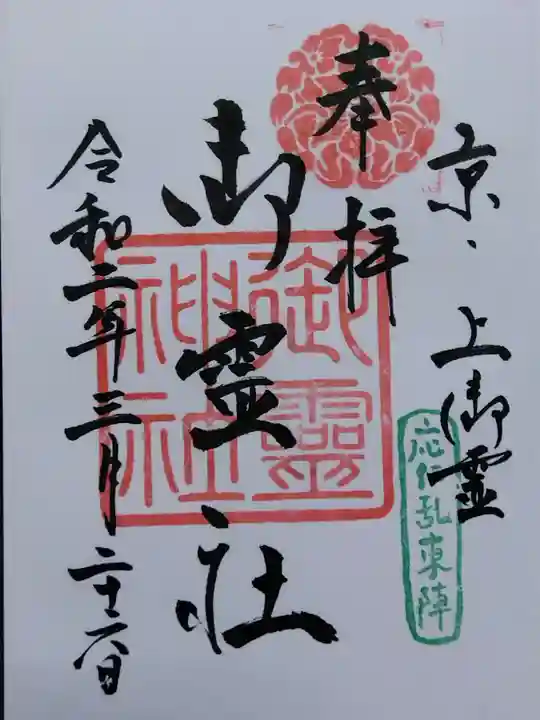 京、上御霊
応仁乱東陣
奉拝
御霊社
御靈
神社
令和二年三月二十二日